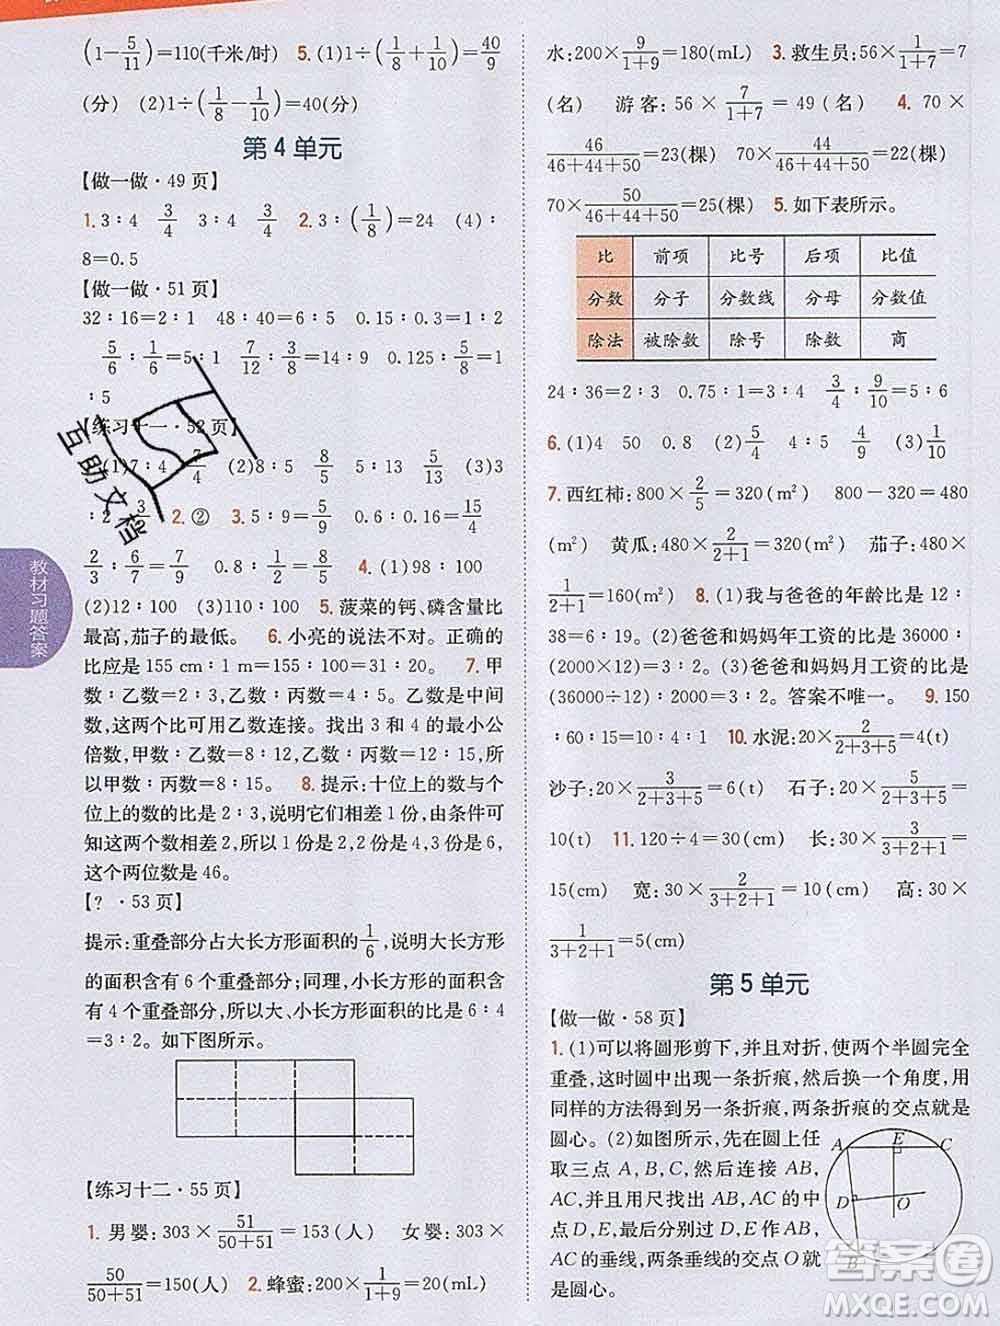 (1-5/11)=110(千米/时) 5.(1)1÷(1/8+1/10)=40/9
(分) (2)1÷(1/8-1/10)=40(分)
第4单元
【做一做·49页】
1.3∶4 3/4 3∶4 3/4 2.3∶(1/8)=24 (4)∶
8=0.5
【做一做·51页】
32∶16=2∶1 48∶40=6∶5 0.15∶0.3=1∶2
5/6∶1/6=5∶1 7/12∶3/8=14∶9 0.125∶5/8=1
∶5
【练习十一·52页】
(1)7∶4 7/4 (2)8∶5 8/5 5∶13 5/13 (3)3
∶2 3/2 2.② 3.5∶9=5/9 0.6∶0.16=15/4
2/3∶6/7=7/9 0.8∶8/9=9/10 4.(1)98∶100
(2)12∶100 5.菠菜的钙、磷含量比
最高,茄子的最低。 6.小亮的说法不对。正确的
比应是155 cm∶1 m=31∶20。 7.甲
数∶乙数=2∶3,乙数∶丙数=4∶5。乙数是中间
数,这两个比可用乙数连接。找出3和4的最小公
倍数,甲数∶乙数=8∶12,乙数∶丙数=12∶15,所
以甲数∶丙数=8∶15。 8.提示:十位上的数与个
位上的数的比是2∶3,说明它们相差1份,由条件可
知这两个数相差2,所以1份是2,2份是4,3份是6,
这个两位数是46。
【?·53页】
提示:重叠部分占大长方形面积的1/6,说明大长方形
的面积含有6个重叠部分;同理,小长方形的面积
含有4个重叠部分,所以大、小长方形面积的比是6∶4
=3∶2。如下图所示。
【练习十二·55页】
1.男婴:303×51/(50+51)=153(人) 女婴:303×
50/(50+51)=150(人) 2.蜂蜜:200×1/(1+9)=20(mL)
水:200×9/(1+9)=180(mL) 3.救生员:56×1/(1+7)=7
(名) 游客:56×7/(1+7)=49(名) 4.70×
46/(46+44+50)=23(棵) 70×44/(46+44+50)=22(棵)
70×50/(46+44+50)=25(棵) 5.如下表所示。
比 前项 比号 后项 比值
分数 分子 分数线 分母 分数值
除法 被除数 除号 除数 商
24∶36=2∶3 0.75∶1=3∶4 3/4∶9/10=5∶6
6.(1)4 50 0.8 (2)4/5 4∶5 4/9 (3)1/10
7.西红柿:800×2/5=320(m²) 800-320=480
(m²) 黄瓜:480×2/(2+1)=320(m²) 茄子:480×
1/(2+1)=160(m²) 8.(1)我与爸爸的年龄比是12∶
38=6∶19。(2)爸爸和妈妈年工资的比是36000∶
(2000×12)=3∶2。(3)爸爸和妈妈月工资的比是
(36000÷12)∶2000=3∶2。答案不唯一。 9.150
∶60∶15=40∶4∶1 10.水泥:20×2/(2+3+5)=4(t)
沙子:20×3/(2+3+5)=6(t) 石子:20×5/(2+3+5)=
10(t) 11.120÷4=30(cm) 长:30×3/(3+2+1)=
15(cm) 宽:30×2/(3+2+1)=10(cm) 高:30×
1/(3+2+1)=5(cm)
第5单元
【做一做·58页】
1.(1)可以将圆形剪下,并且对折,使两个半圆完全
重叠,这时圆中出现一条折痕,然后换一个角度,用
同样的方法得到另一条折痕,两条折痕的交点就是
圆心。(2)如图所示,先在圆上任
取三点A,B,C,然后连接AB,
AC,并且用尺找出AB,AC的中
点D,E,最后分别过D,E作AB,
AC的垂线,两条垂线的交点O就
是圆心。
A E C
D O
B
教材习题答案
互助文档
答案圈
MXQE.COM